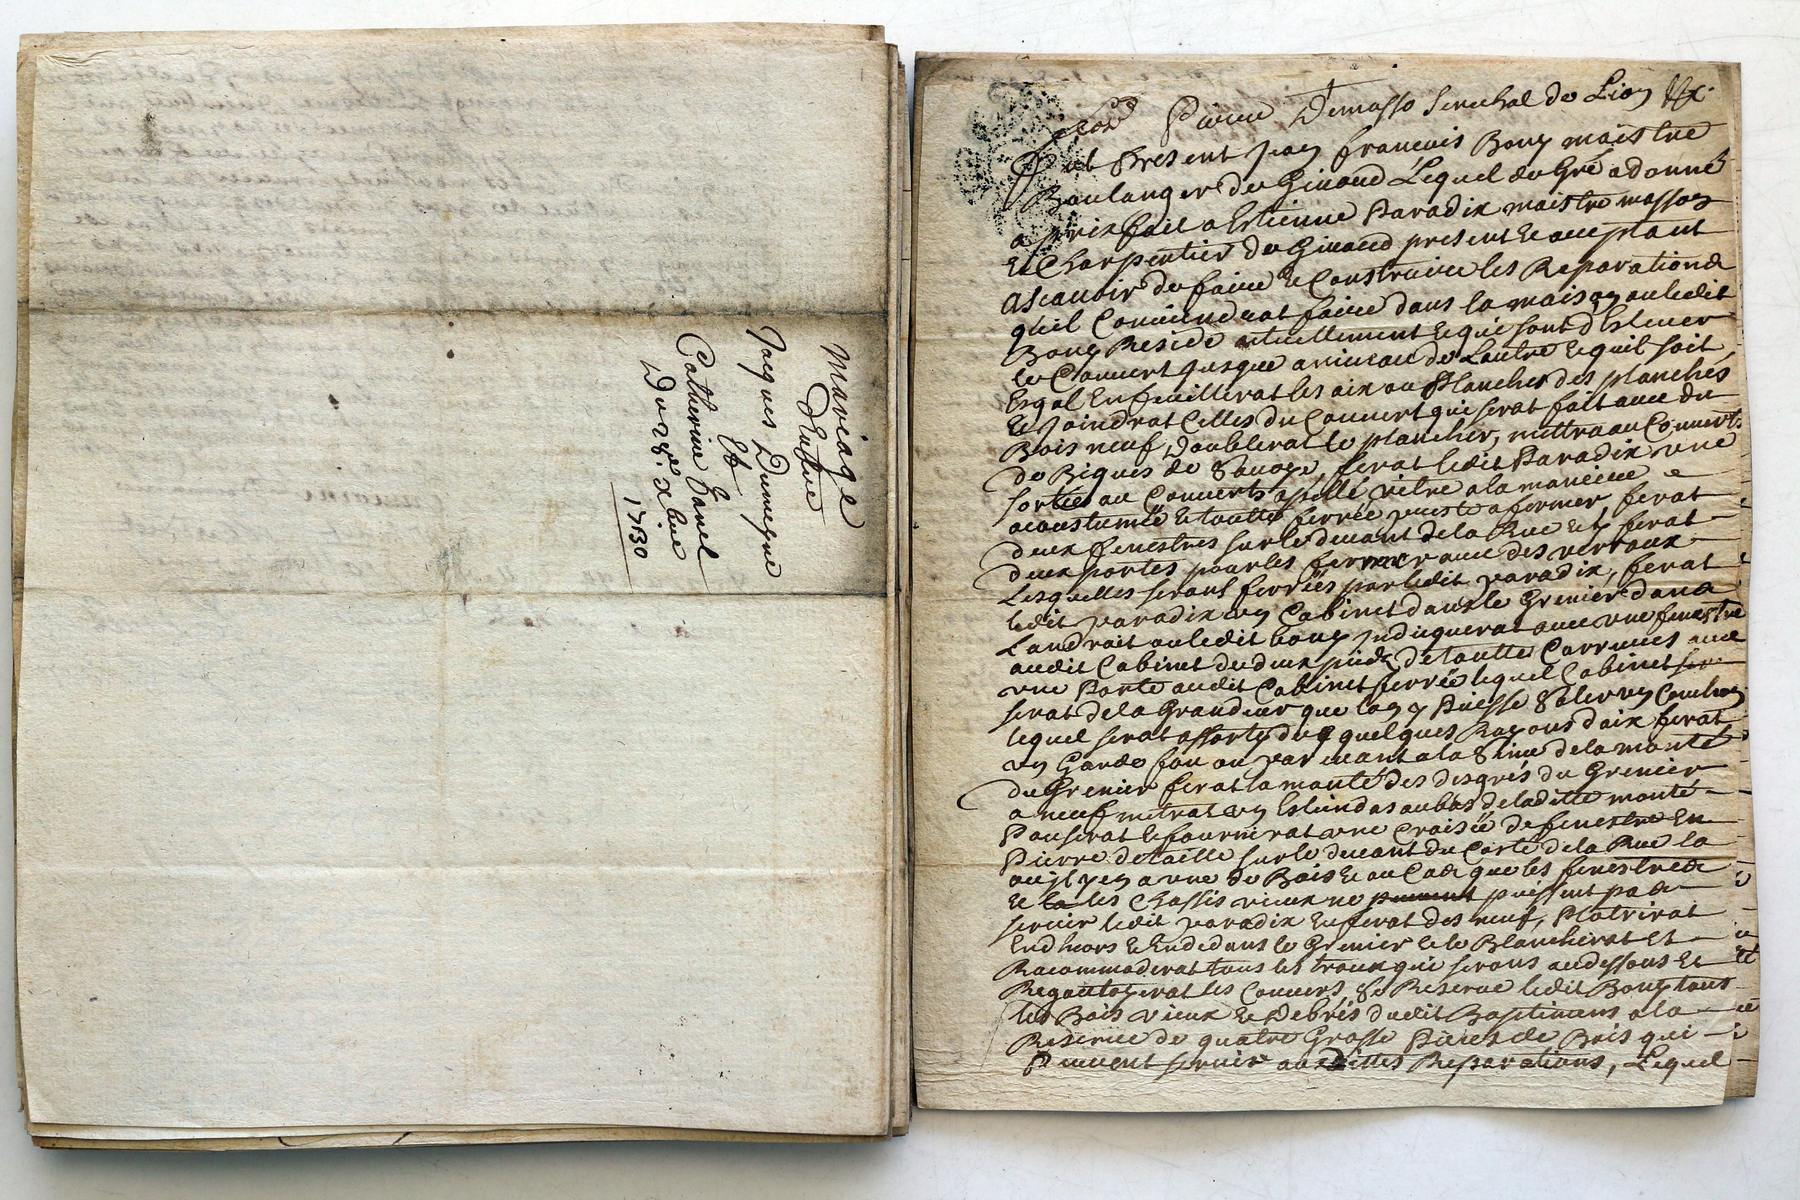 Mariage
d'Entre
Jacques Dumeynie
Et
Catherine Garel
Du 28e. xbre
1730
Pierre Demasso Senechal de Lion &c.
fut Present jean francois Bouy maistre
Boulanger de Givord Lequel de Gré a donné
a prix fait a Estienne Paradix maistre masson
& Charpentier de Givord present & acceptant
ascauoir de faire & Construire les Reparations
qu'il Conviendrat faire dans la maison ou ledit
Bouy Reside actuellement & qui sont d'Esleuer
le Couuert jusque a niueau de Lautre & quil soit
Esgal Enfeuillerat les aix ou Planches des planches
& joindrat Celles du Couuert qui serat fait auec du
Bois neuf, Doublerat le plancher, mettra au Couuerts
de Biques de Sauoye, ferat ledit Paradix une
sorties au Couuerts apellé vitre a la maniere
acoustumée & toutte ferrée juste a fermer ferat
deux fenestres sur le deuant de la Rue et y ferat
deux portes pour les fermer auec des verroux
Lesquelles serons ferrées par ledit paradix, ferat
ledit paradix un Cabinet dans le Grenier dans
Landroit ou ledit bouy jndiquerat auec une fenestre
audit Cabinet de deux pieds de toutte Carrures auec
une Porte audit Cabinet ferrée lequel Cabinet
serat de la Grandeur que lon y Puisse
lequel serat assorty de quelques Rayons daix ferat
un Garde fou ou par euant a la Sime de la monté
du Grenier ferat la monté des desgrés du Grenier
a neuf metrat un au bas de laditte monté
Pouserat & fournirat une Croisée de fenestre En
Pierre detaille sur le deuant du Costé de la Rue la
ou jl y en a une de Bois & au Cas que les fenestres
& la les Chassis vieux ne peuuent puissent pas
seruir ledit paradix En ferat des neuf, Platrirat
En dhors & En dedans le Grenier & le Blancherat Et
Racommoderat tous les troux qui serons au dessous Et
Regoutoyerat les Couuers Se Reserue ledit Bouy tous
les Bois vieux & Debris dudit Bastiment a la
Reserue de quatre Grosse Pieces de Bois qui
Peuuent seruir aux Dittes Reparations, Lequel